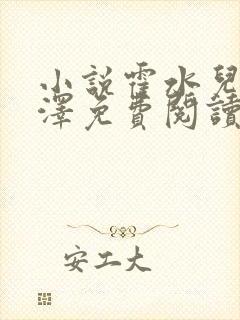 小說霍水兒
澤免費閱讀
安工大